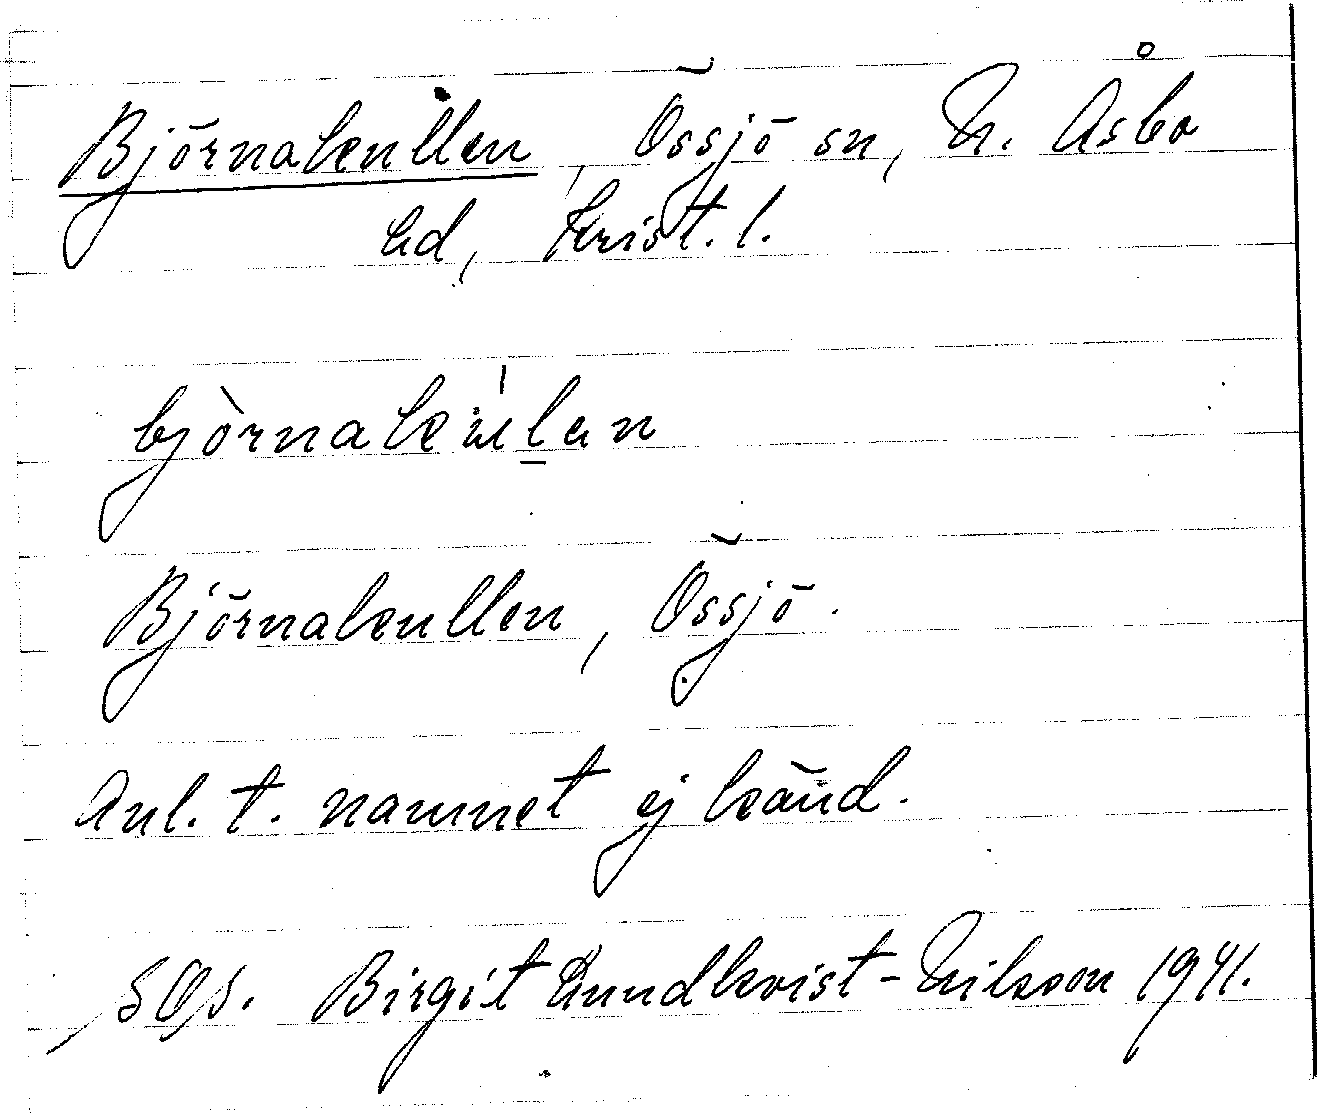 Björnakullen, Össjö sn, N. Åsbo
hd, Krist. l.
björnakulan
Björnakullen, Össjö.
Anl. t. namnet ej känd.
Birgit Lundkvist-Nilsson 1941.